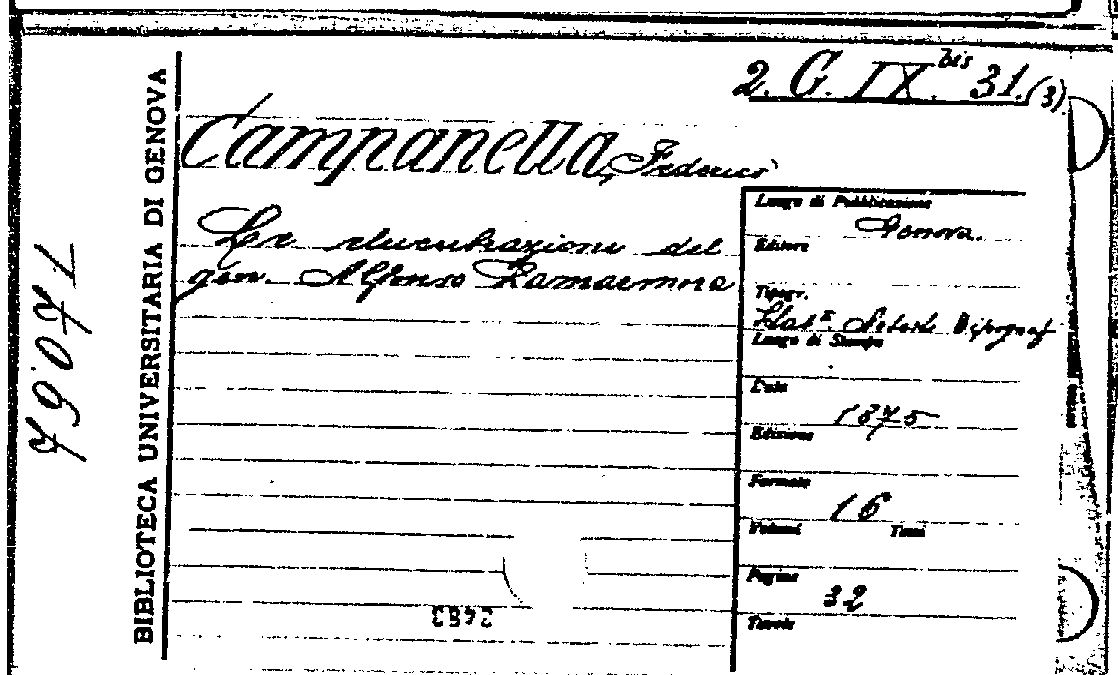 2. G. IX. bis 31. (3)
Campanella, Federico
Le elucubrazioni del
gen. Alfonso Lamarmora
Luogo di Pubblicazione
Genova.
Editore
Tipogr.
Stab. Artisti Tipograf
Luogo di Stampa
Data
1875
Edizione
Formato
16
Volumi Tomi
Pagine
32
Tavole
BIBLIOTECA UNIVERSITARIA DI GENOVA
2483